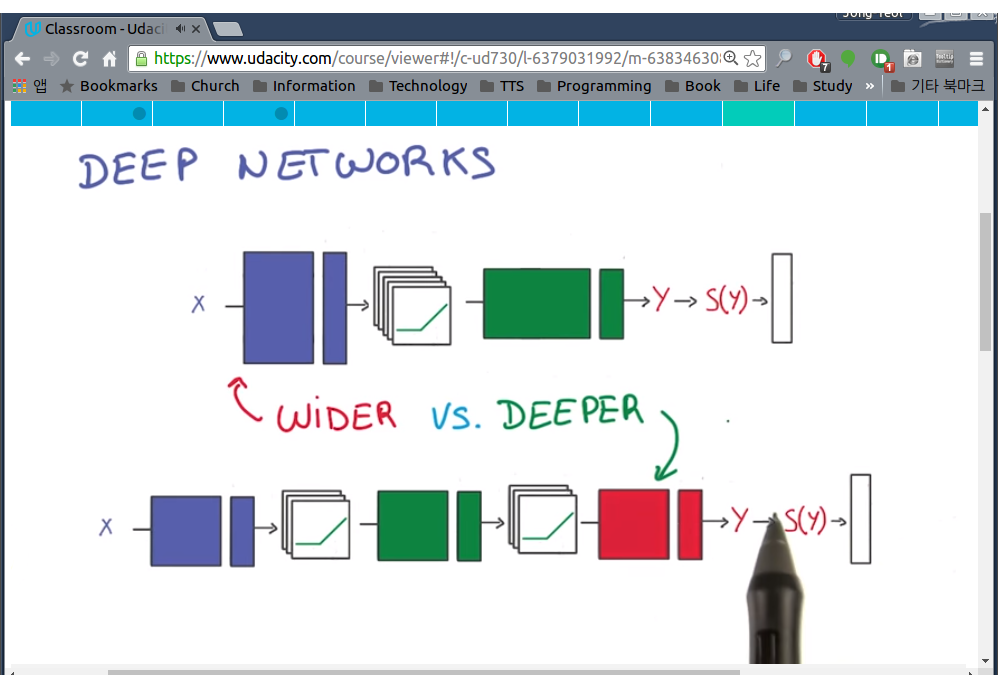 Classroom - Udaci
https://www.udacity.com/course/viewer#!/c-ud730/l-6379031992/m-63834630
7
1
앱 Bookmarks Church Information Technology TTS Programming Book Life Study » 기타 북마크
DEEP NETWORKS
X Y S(Y)
WiDER VS. DEEPER
X Y S(Y)